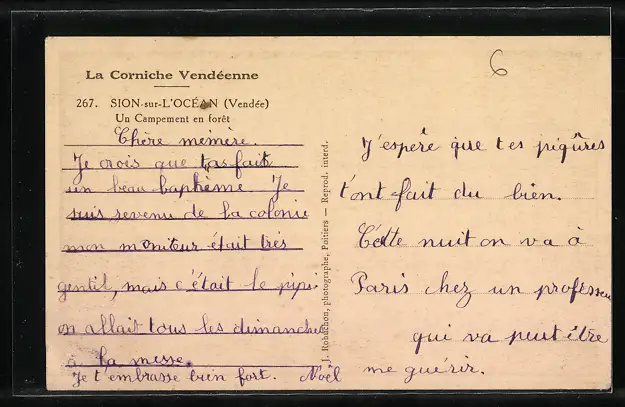 La Corniche Vendéenne
267. SION-sur-L'OCÉAN (Vendée)
Un Campement en forêt
Chère mémère.
Je crois que tas fait
un beau baphème. Je
suis revenu de la colonie
mon moniteur était très
gentil, mais c'était le pipi
on allait tous les dimanches
à la messe.
Je t'embrasse bien fort. Noël
J. Robuchon, photographe, Poitiers — Reprod. interd.
6
J'espère que tes piqûres
t'ont fait du bien.
Cette nuit on va à
Paris chez un professeur
qui va peut être
me guérir.